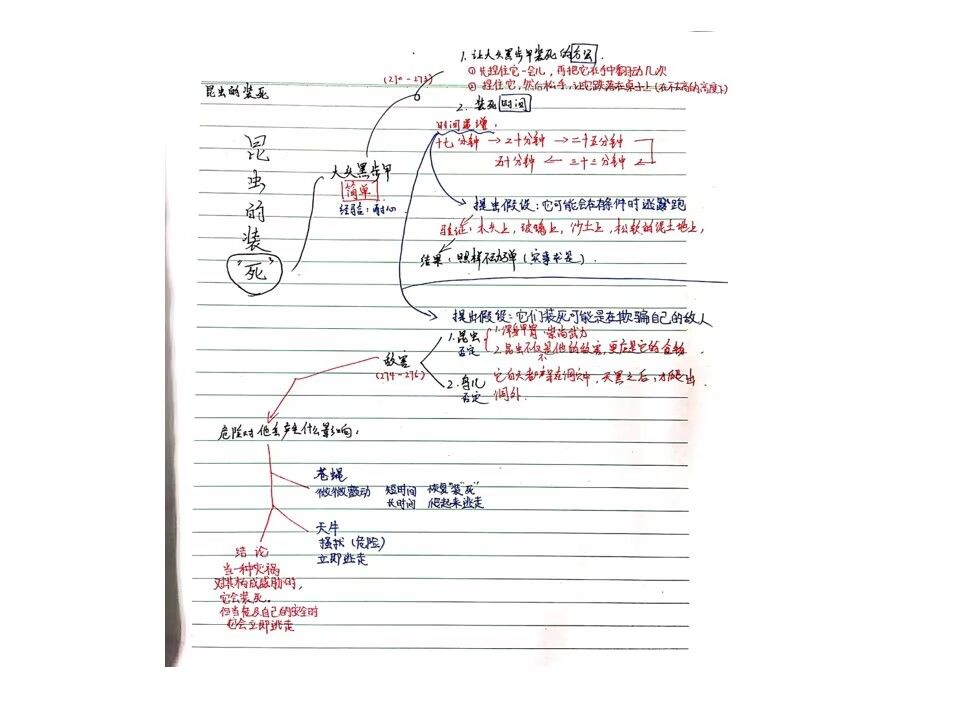 昆虫的装死
昆虫的装“死”
大头黑步甲
简单
经验:耐心
(270-273)
1. 让大头黑步甲装死的方法.
① 先捏住它一会儿,再把它在手中翻动几次
② 捏住它,然后松手,让它跌落在桌子上(在不太高的高度上)
2. 装死时间
时间递增.
十七分钟 → 二十分钟 → 二十五分钟
五十分钟 ← 三十三分钟 ←
提出假设:它可能会在有条件时逃跑
验证:木头上,玻璃上,沙土上,松软的泥土地上,
结果:照样不动弹(实事求是).
提出假设:它们装死可能是在欺骗自己的敌人
敌害
(274-276)
1. 昆虫
否定
1. 浑身甲胄,崇尚武力
2. 昆虫不仅不是他的敌害,更应是它的食物.
2. 鸟儿
否定
它白天都待在洞穴中,天黑之后,才爬出
洞外.
危险对他会产生什么影响:
苍蝇
微微颤动 短时间 恢复“装”死”
长时间 爬起来逃走
天牛
搔扰(危险)
立即逃走
结论
当一种灾祸
对其构成威胁时,
它会装死。
但当危及自己的安全时
它会立即逃走